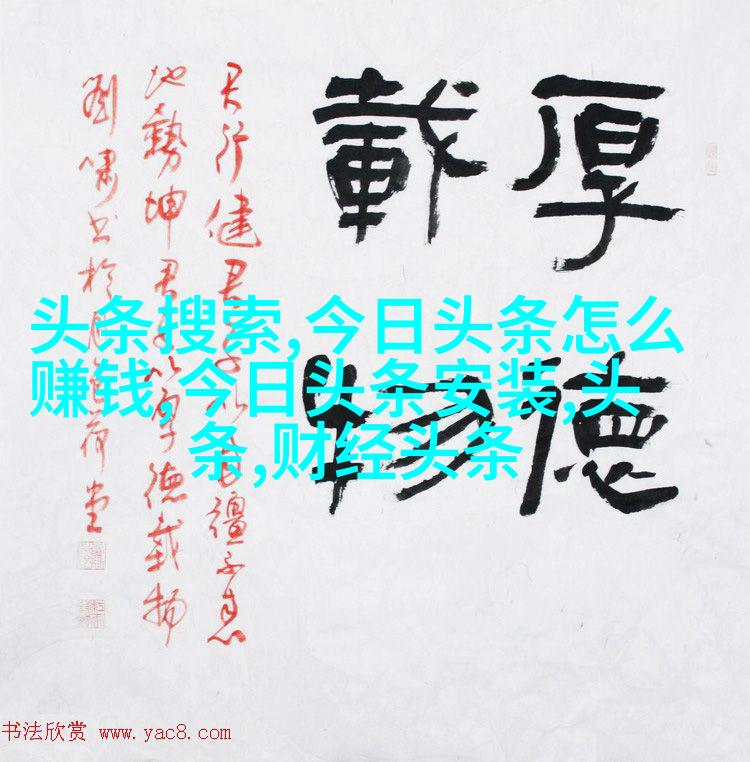 厚德
載物
天行健君子以自彊不息
地勢坤君子以厚德載物
劉嘯书於荷堂
头条搜索,今日头条怎么
赚钱,今日头条安装,头
条,财经头条
书法欣赏 www.yac8.com